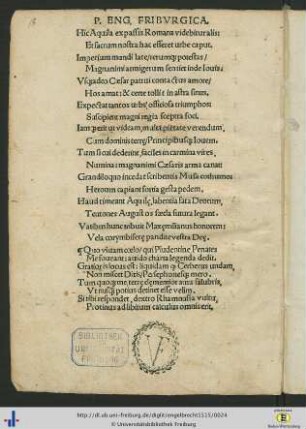 P. ENG. FRIBVRGICA.
Hic Aquila expassis Romana videbitur alis:
Et factum nostra hac esset vt urbe caput.
Imperium mundi late, rerumq; potestas,
Magnanimi armigerum sentiet inde Iouis.
Vsq; adeo Cæsar patrui conta ctus amore,
Hos amat: & certe tollit in astra sinus.
Expectat tantos urbs officiosa triumphos:
Suscipient magni regia sceptra fori.
Iam petit ut videam, multa pietate verendum,
Cum dominis terræ, Principibusq; Iouem.
Tum si cui dederint, faciles in carmina vires,
Numina: magnanimi Cæsaris arma canat:
Grandiloquo incedat scribentis Musa cothurno:
Heroum capiant somnia gesta pedem.
Haud timeant Aquilę, labentia fata Deorum,
Teutones Augustos fœda futura legant.
Vatibus hunc tribuit Maxmilianus honorem:
Vela corymbiferę pandite vestra Deę.
Quo viuam cœlo; qui Prudentine Penates
Me foueant; auido charta legenda dedit.
Gratior is locus est: liquidam q; Cerberus undam,
Non miscet Ditis, Persephonesq; mero.
Tum quoq; me, terrę dementior aura salubris,
Vt nusq; potius detinet esse velim.
Si tibi responder, dextro Rhamnusia vultu,
Protinus ad libitum calculus omnis erit.
BIBLIOTHEK
DER
UNIVERSITÄT
V
http://dl.ub.uni-freiburg.de/diglit/engelbrecht1515/0024
© Universitätsbibliothek Freiburg